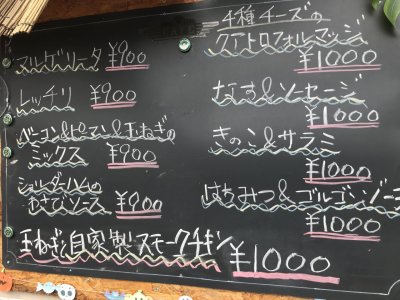 マルゲリータ ¥900
レッチリ ¥900
ベーコン&ピーマン&玉ねぎの
ミックス ¥900
ショルダーハムの
わさびソース ¥900
玉ねぎ&自家製スモークチキン ¥1000
4種チーズの
クアトロフォルマッジ
¥1000
なす&ソーセージ
¥1000
きのこ&サラミ
¥1000
はちみつ&ゴルゴンゾーラ
¥1000